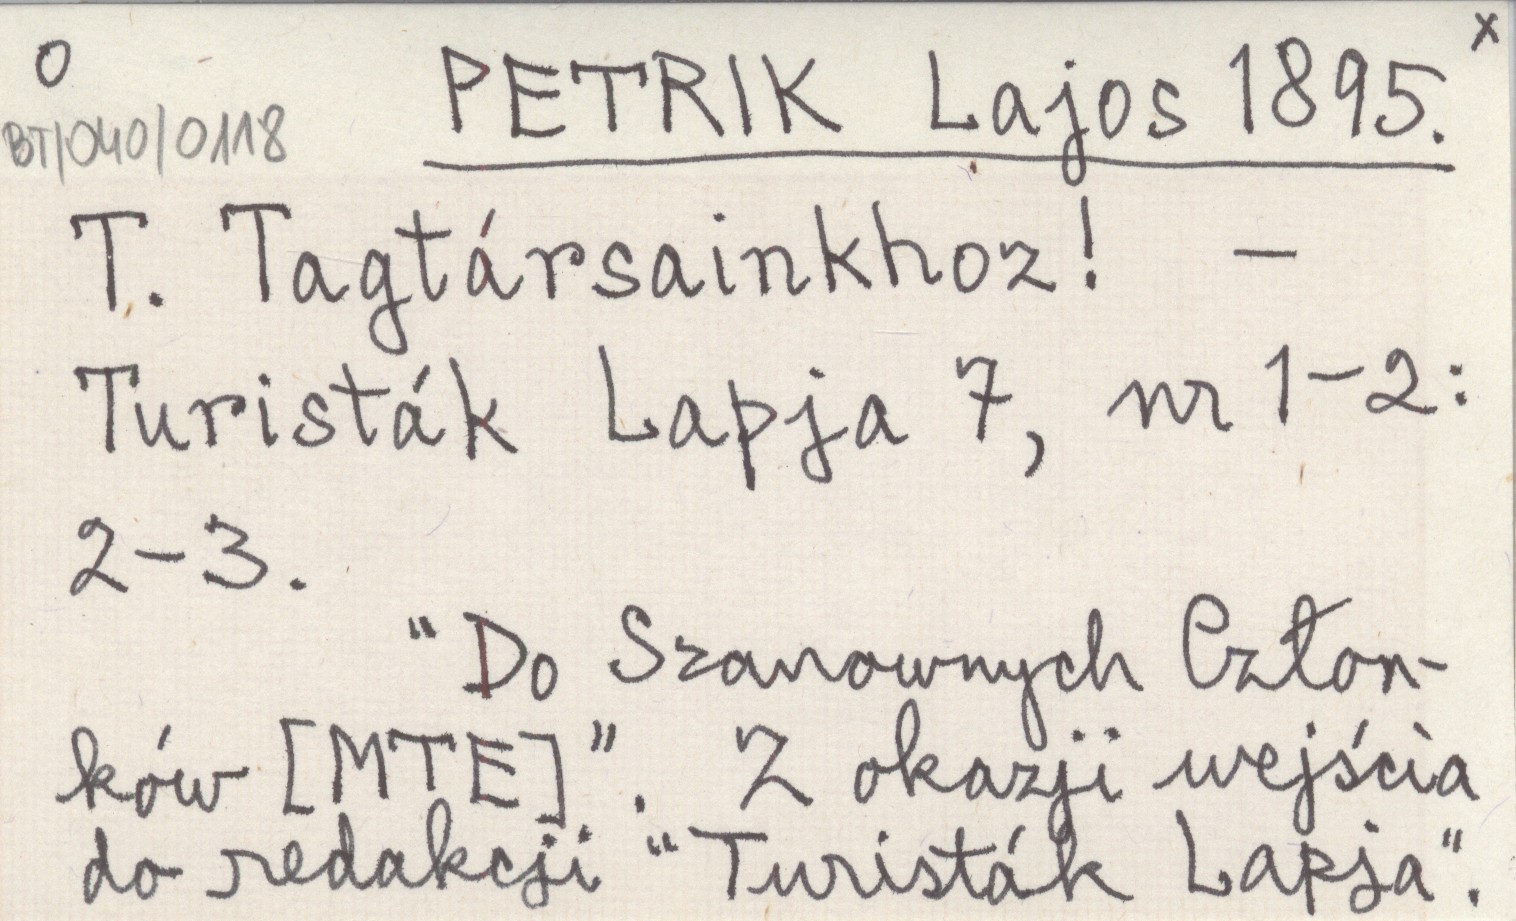 O x
PETRIK Lajos 1895.
BT/040/0118
T. Tagtársainkhoz! –
Turisták Lapja 7, nr 1–2:
2–3.
"Do Szanownych Człon-
ków [MTE]". Z okazji wejścia
do redakcji "Turisták Lapja".